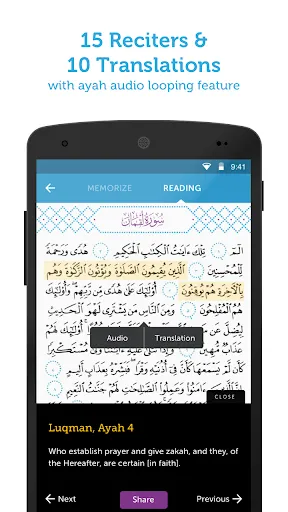 15 Reciters &
10 Translations
with ayah audio looping feature
9:41
MEMORIZE READING
سُورَةُ لُقْمَان
الٓمٓ تِلْكَ ءَايَٰتُ ٱلْكِتَٰبِ ٱلْحَكِيمِ هُدًى وَرَحْمَةً
لِّلْمُحْسِنِينَ ٱلَّذِينَ يُقِيمُونَ ٱلصَّلَوٰةَ وَيُؤْتُونَ ٱلزَّكَوٰةَ وَهُم
بِٱلْءَاخِرَةِ هُمْ يُوقِنُونَ أُو۟لَٰٓئِكَ عَلَىٰ هُدًى مِّن رَّبِّهِمْ وَأُو۟لَٰٓئِكَ
هُمُ ٱلْمُفْلِحُونَ وَمِنَ ٱلنَّاسِ مَن يَشْتَرِى لَهْوَ ٱلْحَدِيثِ
لِيُضِلَّ عَن أُو۟لَٰٓئِكَ لَهُمْ
Audio Translation
عَذَابٌ مُّهِينٌ مُسْتَكْبِرًا
كَأَن لَّمْ يَسْمَعْهَا كَأَنَّ فِىٓ أُذُنَيْهِ وَقْرًا فَبَشِّرْهُ بِعَذَابٍ أَلِيمٍ
إِنَّ ٱلَّذِينَ ءَامَنُوا۟ وَعَمِلُوا۟ ٱلصَّٰلِحَٰتِ لَهُمْ جَنَّٰتُ ٱلنَّعِيمِ
CLOSE
Luqman, Ayah 4
Who establish prayer and give zakah, and they, of
the Hereafter, are certain [in faith].
Next Share Previous